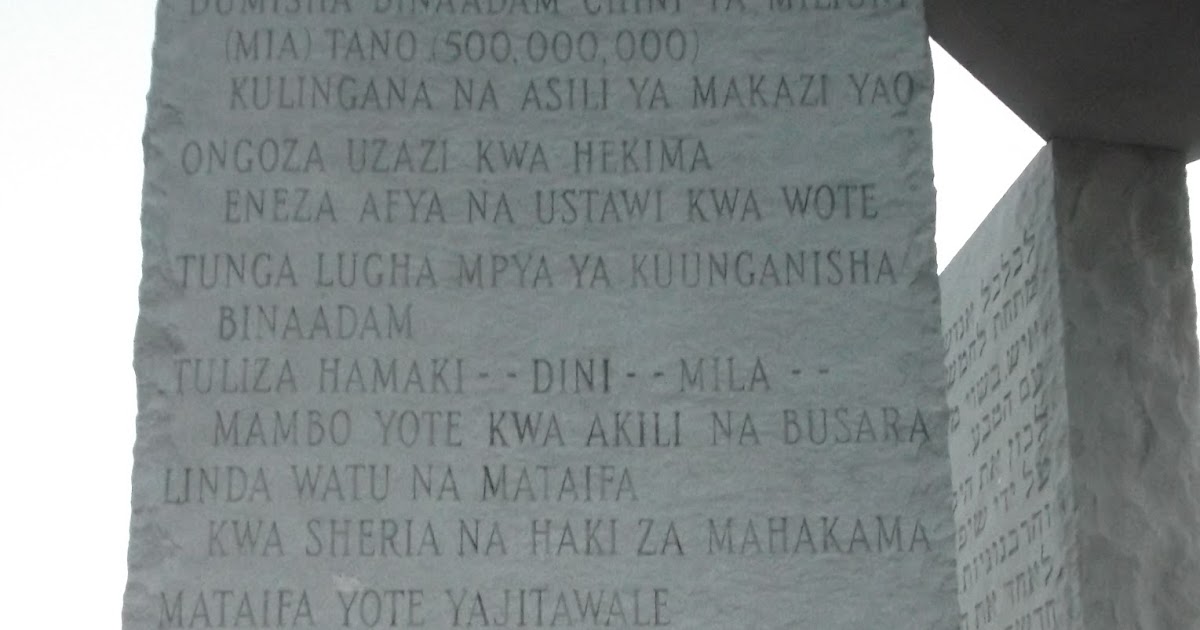 DUMISHA BINAADAM CHINI YA MILIONI
(MIA) TANO (500,000,000)
KULINGANA NA ASILI YA MAKAZI YAO
ONGOZA UZAZI KWA HEKIMA
ENEZA AFYA NA USTAWI KWA WOTE
TUNGA LUGHA MPYA YA KUUNGANISHA
BINAADAM
TULIZA HAMAKI -- DINI -- MILA --
MAMBO YOTE KWA AKILI NA BUSARA
LINDA WATU NA MATAIFA
KWA SHERIA NA HAKI ZA MAHAKAMA
MATAIFA YOTE YAJITAWALE
מתחת
עם הטבע
לכוון את
והרבגוניות
לאחד את